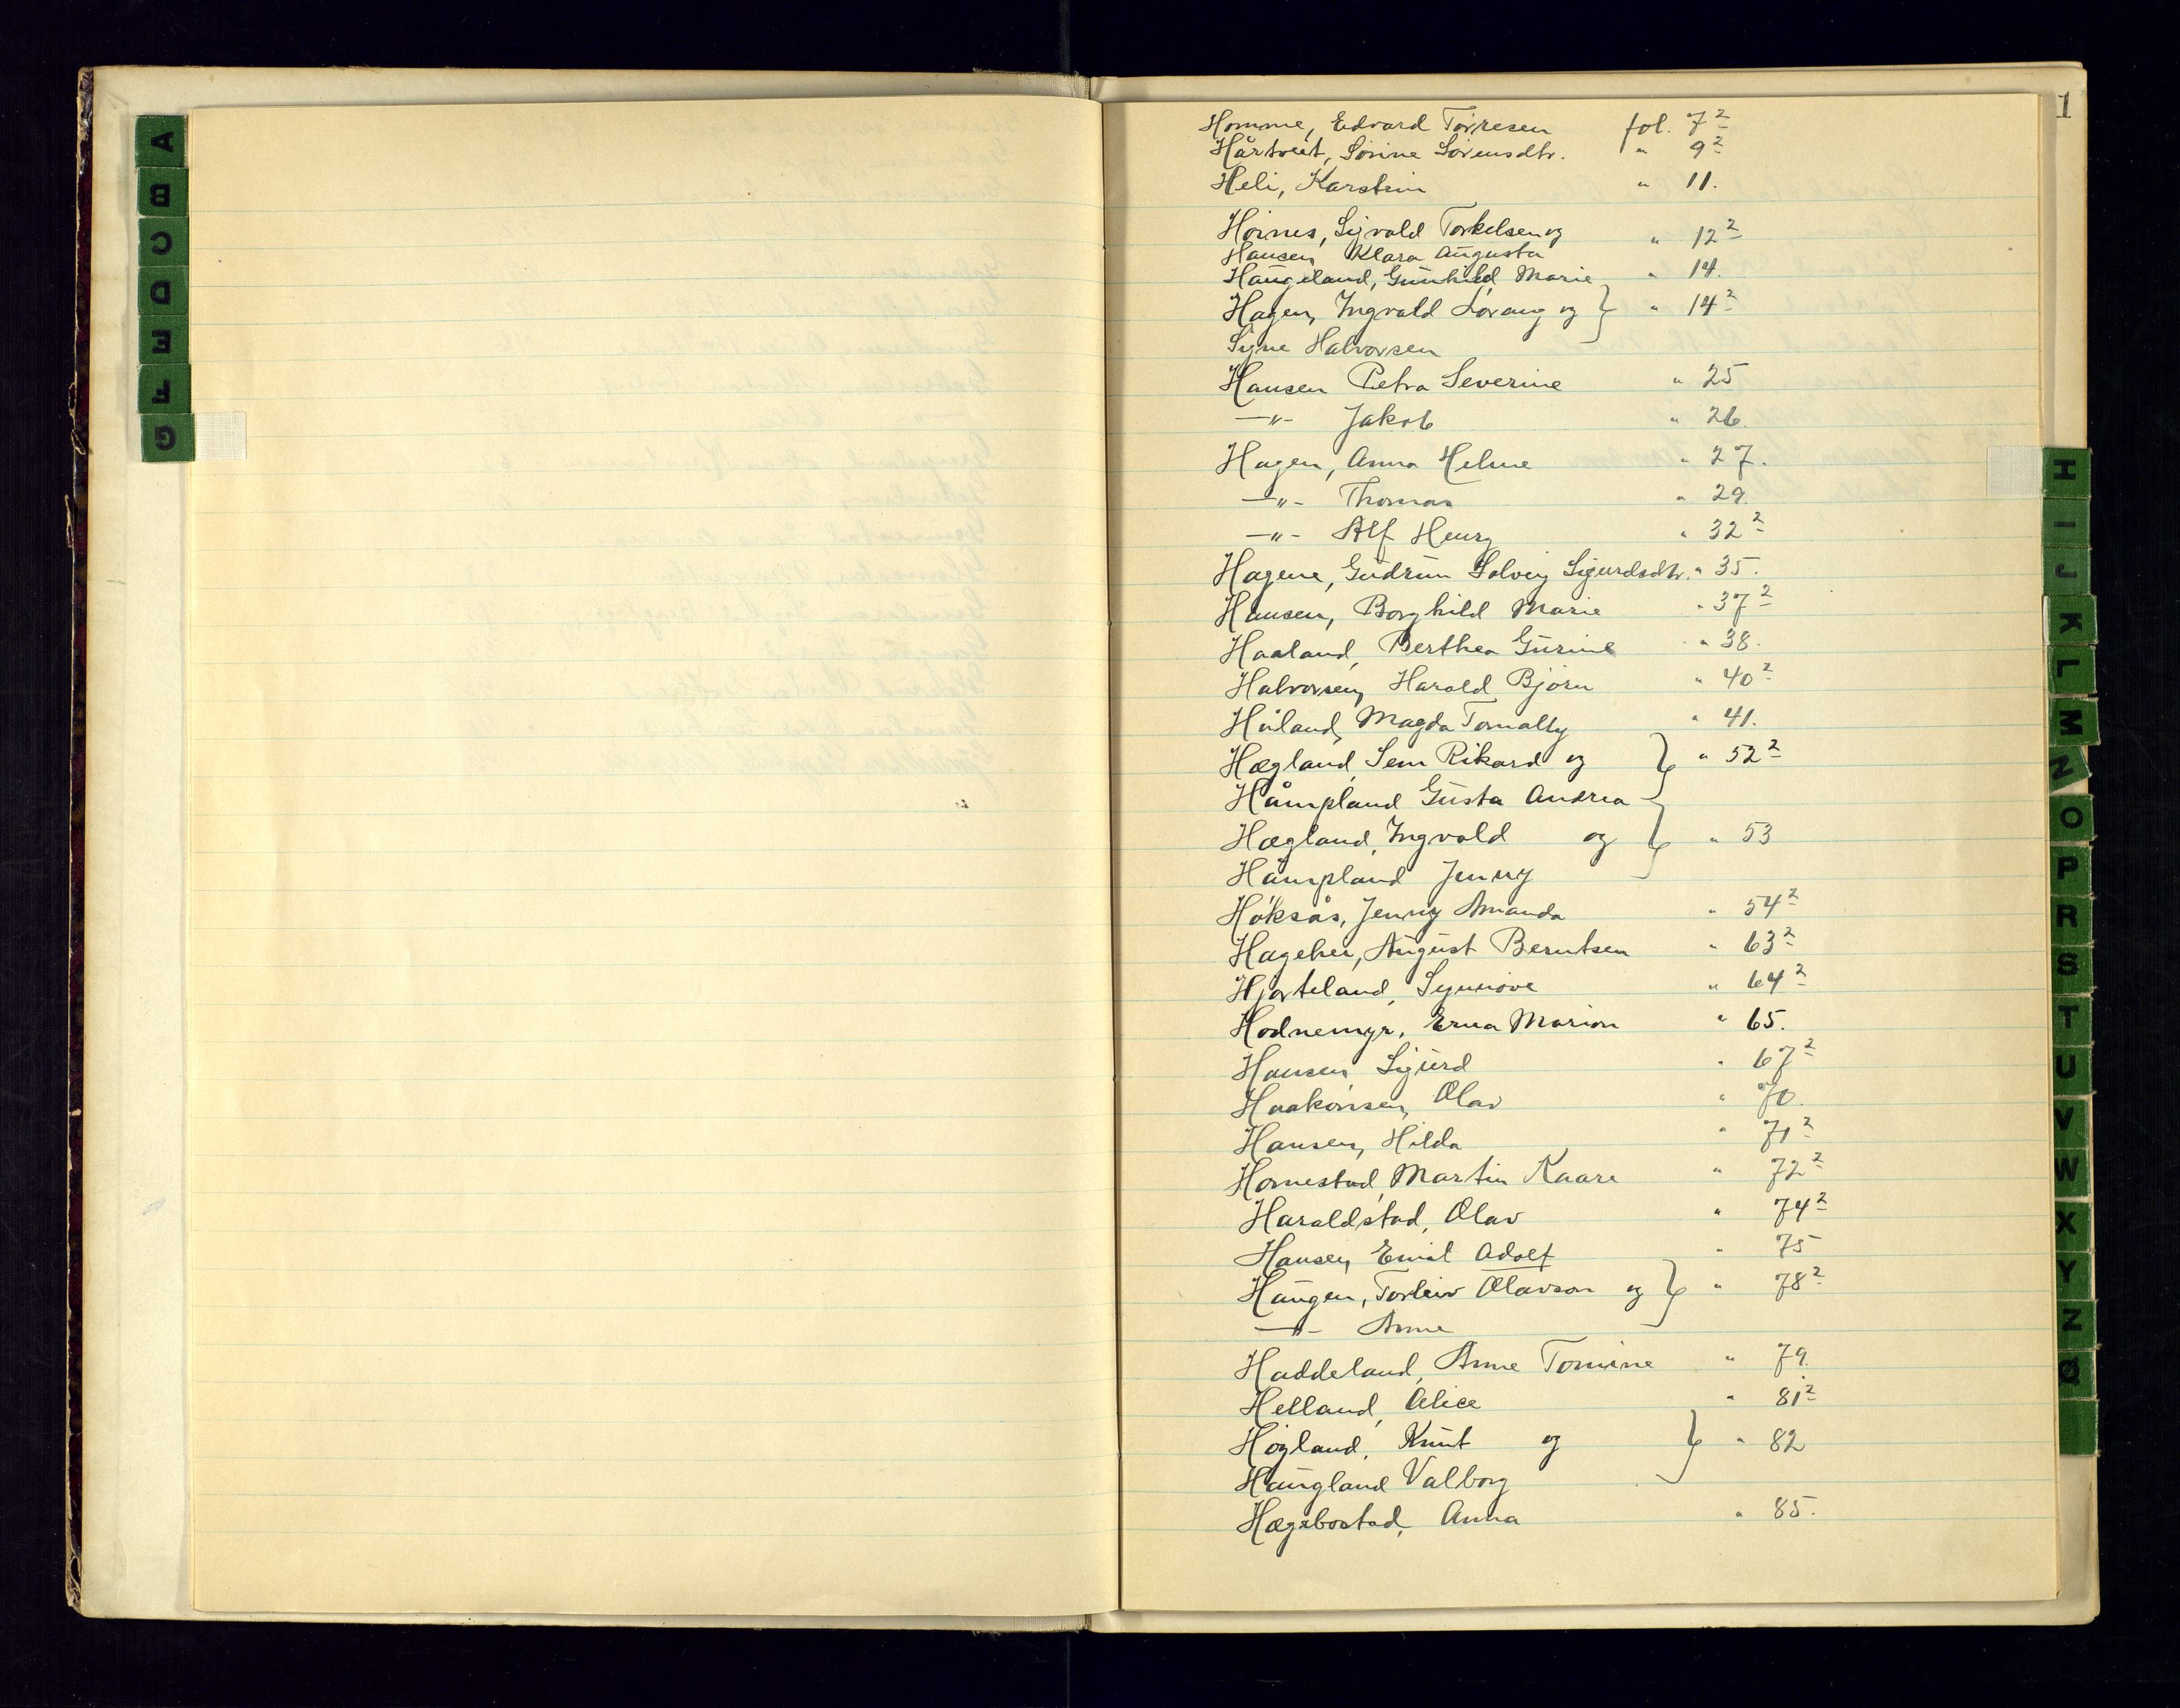 A
B
C
D
E
F
G
1
Homme, Edvard Torresen fol. 7²
Hårtveit, Sørine Sørensdtr. " 9²
Heli, Karstein " 11.
Hornes, Sigvald Torkelsen og " 12²
Hansen Klara Augusta
Haugeland, Gunhild Marie " 14.
Hagen, Ingvald Lorang og } " 14²
Signe Halvorsen
Hansen Petra Severine " 25
—"— Jakob " 26.
Hagen, Anna Helme " 27.
—"— Thomas " 29.
—"— Alf Henry " 32²
Hagene, Gudrun Solveig Sigurdsdtr. " 35.
Hansen, Borghild Marie " 37²
Haaland, Berthea Gurine " 38.
Halvorsen, Harald Bjørn " 40²
Magda " 41.
Hægland, Sem Rikard og } " 52²
Håmpland Gusta Andrea
Hægland, Ingvald og } " 53
Håmpland Jenny
Høksås, Jenny Amanda " 54²
Hagehei, August Berntsen " 63²
Hjorteland, Synnøve " 64²
Hodnemyr, Erna Marion " 65.
Hansen, Sigurd " 67²
Haakonsen, Olav " 70.
Hansen, Hilda " 71²
Homestad, Martin Kaare " 72²
Haraldstad, Olav " 74²
Hansen, Emil Adolf " 75
Haugen, Torleiv Olavson og } " 78²
—"— Anne
Haddeland, Anne Tomine " 79.
Helland, Alice " 81²
Høgland, Knut og } " 82
Haugland Valborg
Hægebostad, Anna " 85.
H
I
J
K
L
M
N
O
P
R
S
T
U
V
W
X
Y
Z
Ø